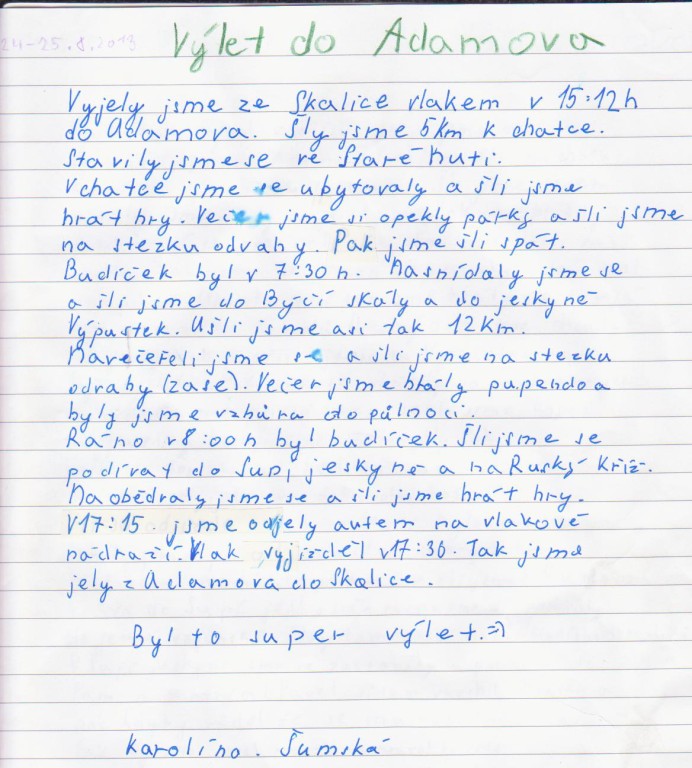 24-25.8.2013
Výlet do Adamova
Vyjely jsme ze Skalice vlakem v 15:12h
do Adamova. Šly jsme 5km k chatce.
Stavily jsme se ve Staré huti.
V chatce jsme se ubytovaly a šli jsme
hrát hry. Večer jsme si opekly párky a šli jsme
na stezku odvahy. Pak jsme šli spát.
Budíček byl v 7:30 h. Nasnídaly jsme se
a šli jsme do Býčí skály a do jeskyně
Výpustek. Ušli jsme asi tak 12km.
Navečeřeli jsme se a šli jsme na stezku
odvahy (zase). Večer jsme hrály pupendo a
byly jsme vzhůru do půlnoci.
Ráno v 8:00 h byl budíček. Šli jsme se
podívat do Supí jeskyně a na Ruský Kříž.
Naobědvaly jsme se a šli jsme hrát hry.
V 17:15 jsme odjely autem na vlakové
nádraží. Vlak vyjížděl v 17:36. Tak jsme
jely z Adamova do Skalice.
Byl to super výlet.=)
Karolína. Šumská